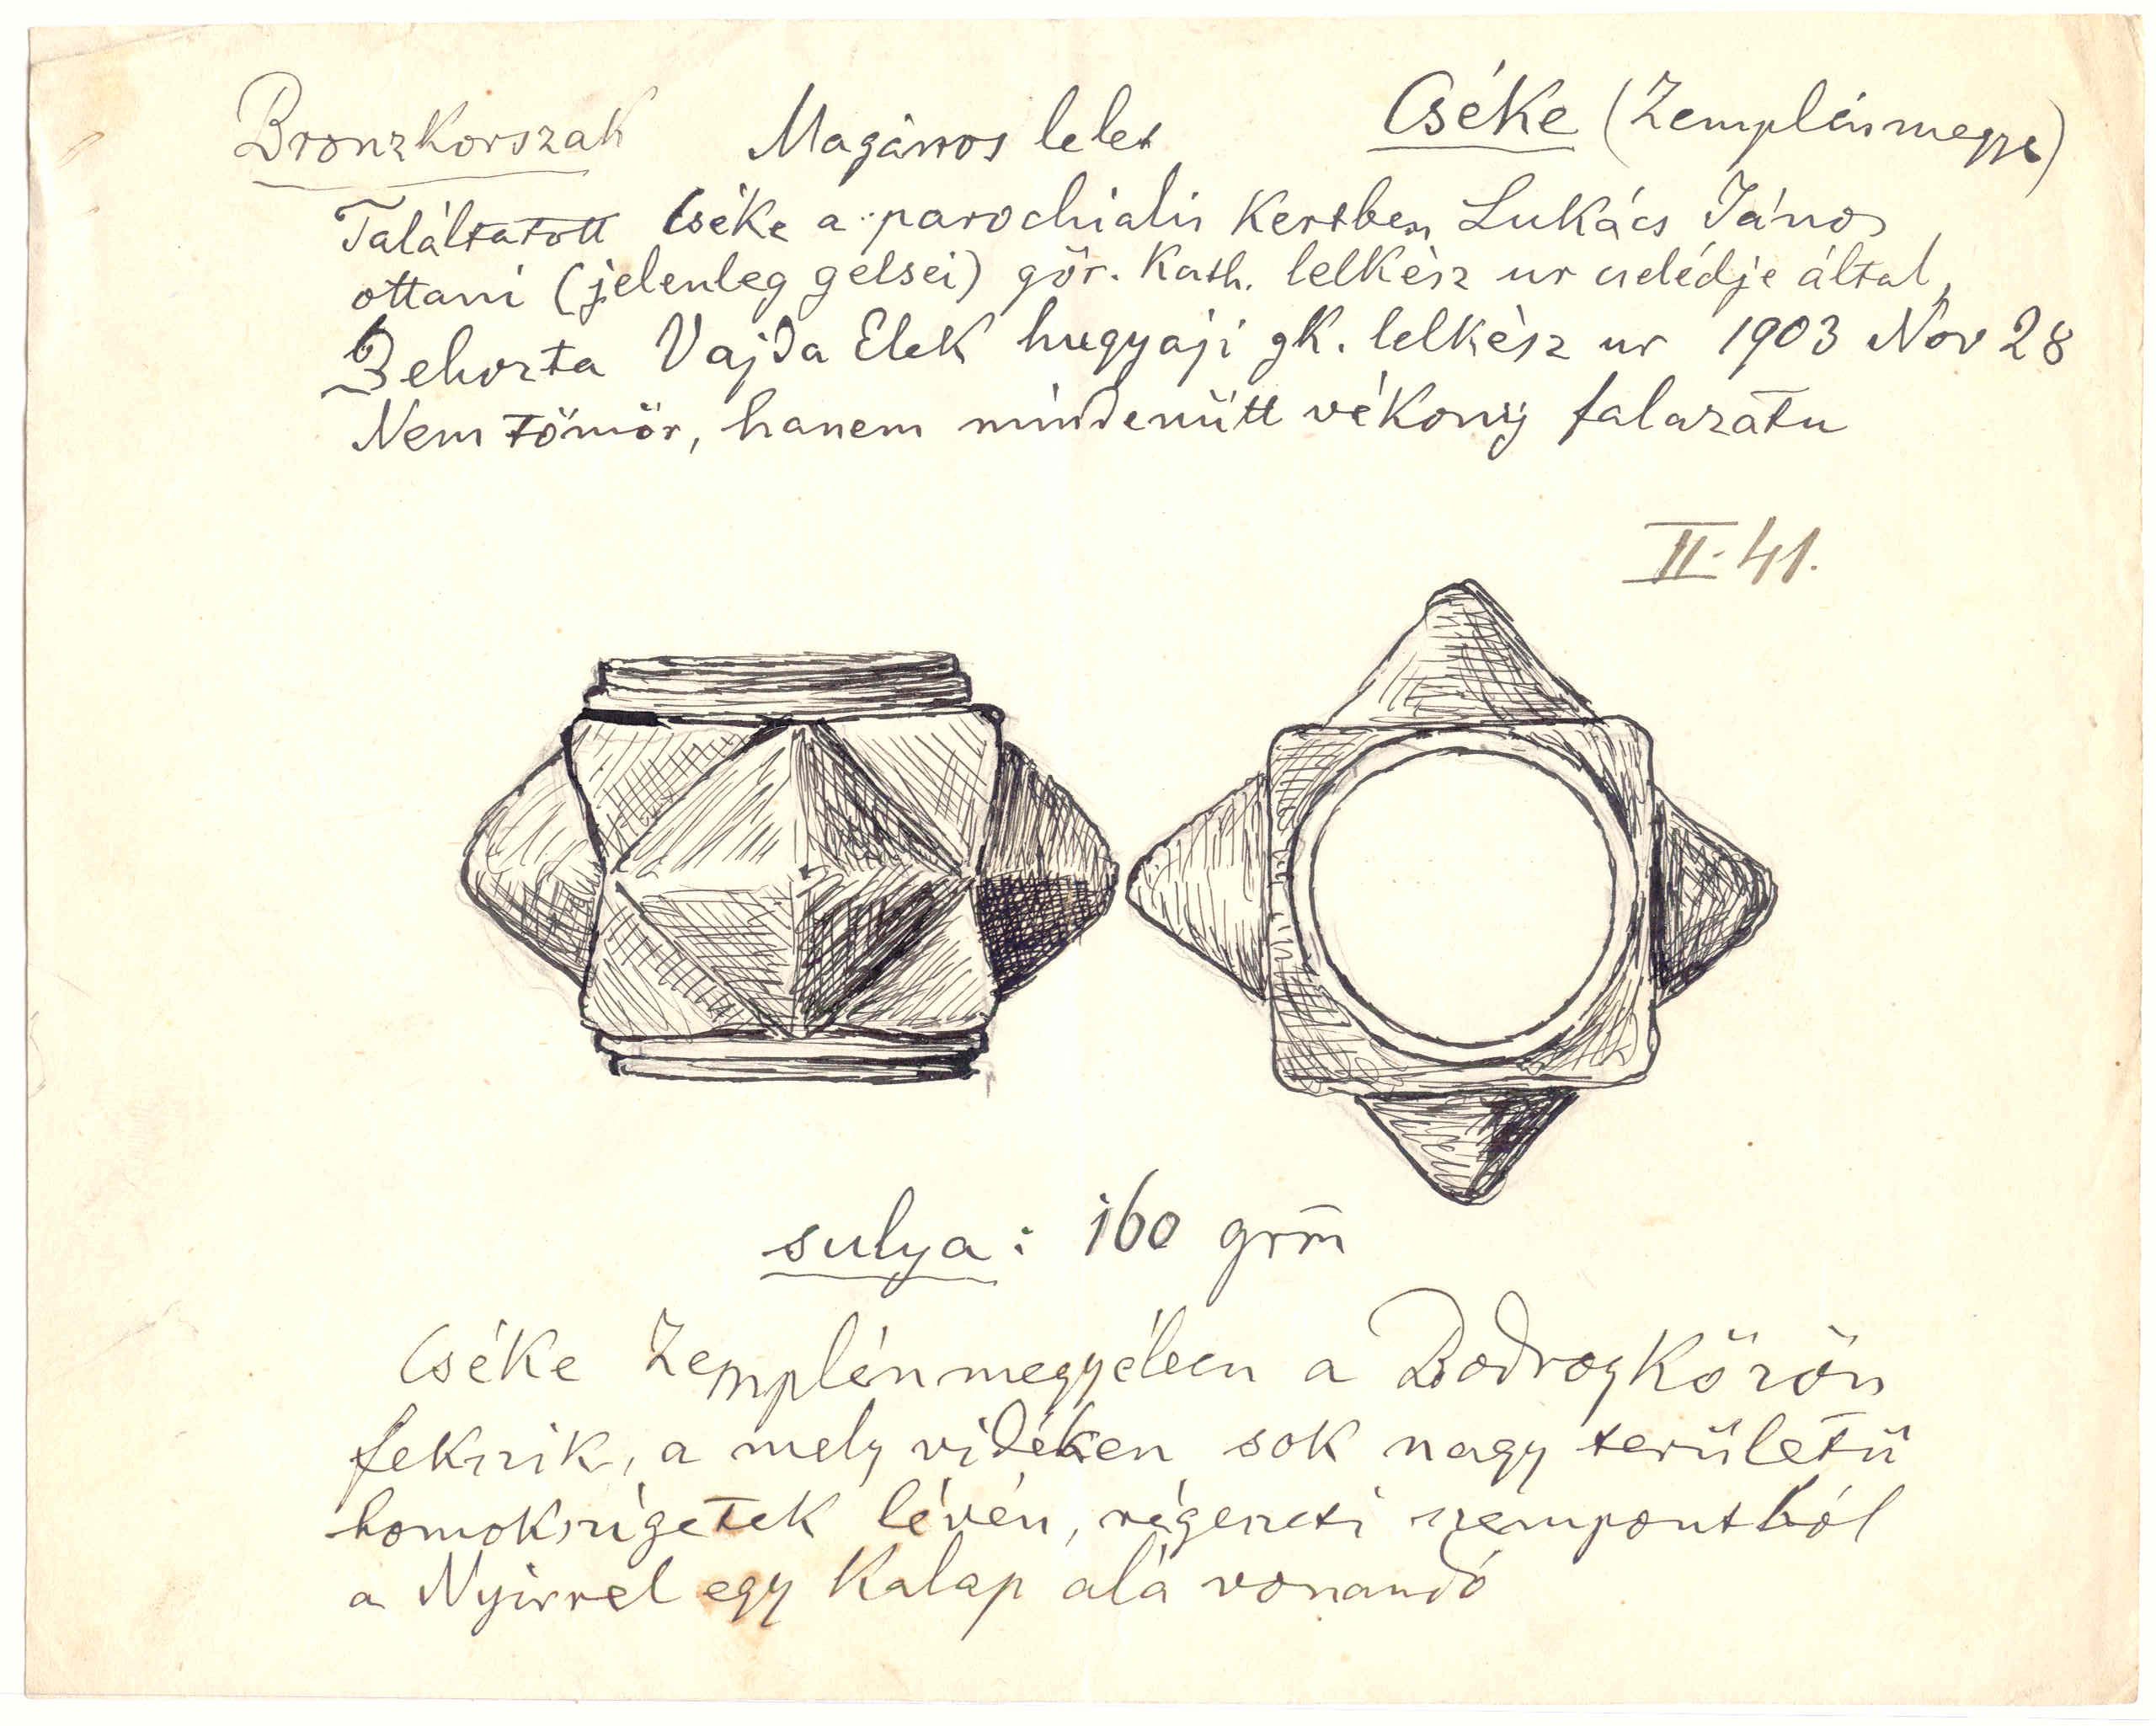 Bronzkorszak Magános lelet Cséke (Zemplénmegye)
Találtatott Cséke a parochialis kertben Lukács János
ottani (jelenleg gelsei) gör. kath. lelkész ur cselédje által,
Behozta Vajda Elek hugyaji gk. lelkész ur 1903 Nov 28
Nem tömör, hanem mindenütt vékony falazatu
II. 41.
sulya: 160 grm̄
Cséke Zemplénmegyében a Bodrogközön
fekszik, a mely vidéken sok nagy területü
homokszigetek lévén, régészeti szempontból
a Nyirrel egy kalap alá vonandó